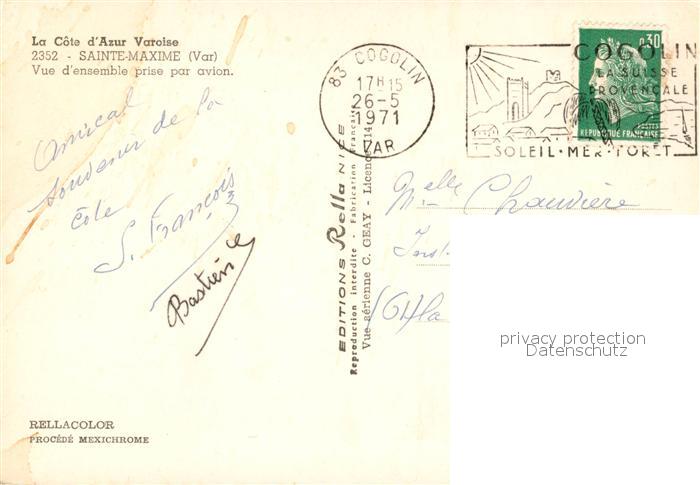 La Côte d'Azur Varoise
2352 - SAINTE-MAXIME (Var)
Vue d'ensemble prise par avion.
Amical
souvenir de la
Côte
S. François
Bastien
RELLACOLOR
PROCÉDÉ MEXICHROME
83 COGOLIN
17H15
26-5
1971
VAR
COGOLIN
LA SUISSE
PROVENÇALE
SOLEIL·MER·FORET
0,30
POSTES
REPUBLIQUE FRANÇAISE
EDITIONS Rella NICE
Reproduction interdite - Fabrication Française
Vue aérienne C. GEAY - Licence 114
Melle Chauvière
Inst
privacy protection
Datenschutz